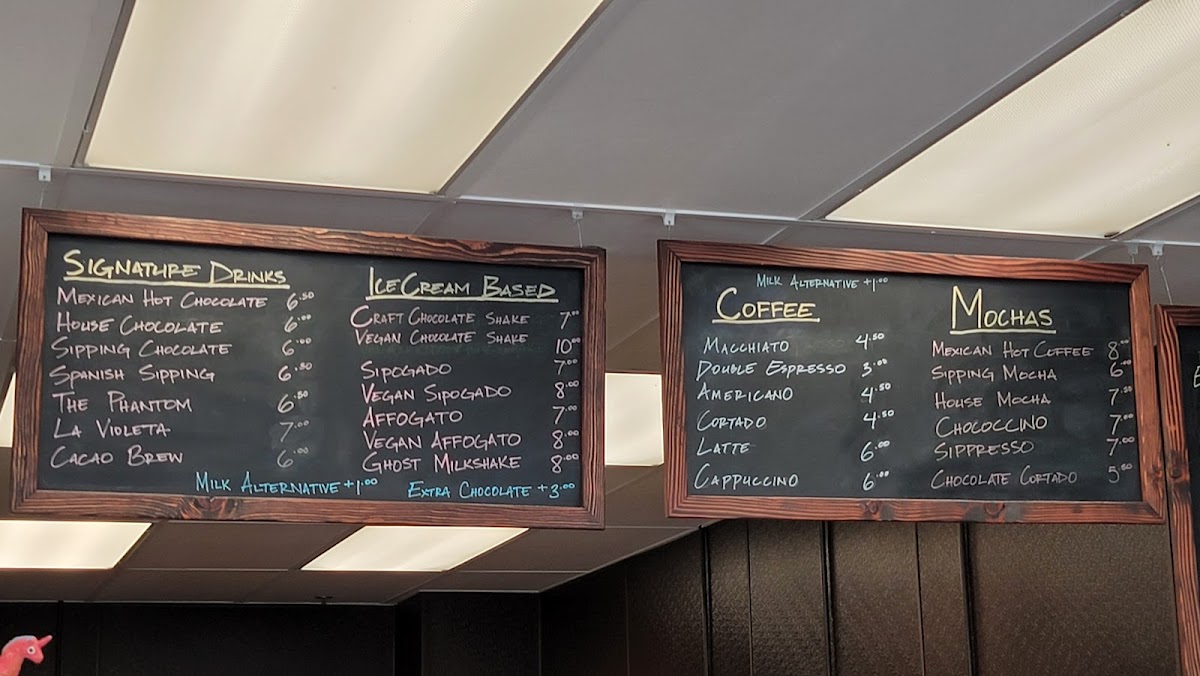 SIGNATURE DRINKS
MEXICAN HOT CHOCOLATE 6.50
HOUSE CHOCOLATE 6.00
SIPPING CHOCOLATE 6.00
SPANISH SIPPING 6.50
THE PHANTOM 6.50
LA VIOLETA 7.00
CACAO BREW 6.00
ICE CREAM BASED
CRAFT CHOCOLATE SHAKE 7.00
VEGAN CHOCOLATE SHAKE 10.00
SIPOGADO 7.00
VEGAN SIPOGADO 8.00
AFFOGATO 7.00
VEGAN AFFOGATO 8.00
GHOST MILKSHAKE 8.00
MILK ALTERNATIVE +1.00 EXTRA CHOCOLATE +3.00
MILK ALTERNATIVE +1.00
COFFEE
MACCHIATO 4.50
DOUBLE ESPRESSO 3.00
AMERICANO 4.50
CORTADO 4.50
LATTE 6.00
CAPPUCCINO 6.00
MOCHAS
MEXICAN HOT COFFEE 8.00
SIPPING MOCHA 6.00
HOUSE MOCHA 7.50
CHOCOCCINO 7.00
SIPPRESSO 7.00
CHOCOLATE CORTADO 5.50